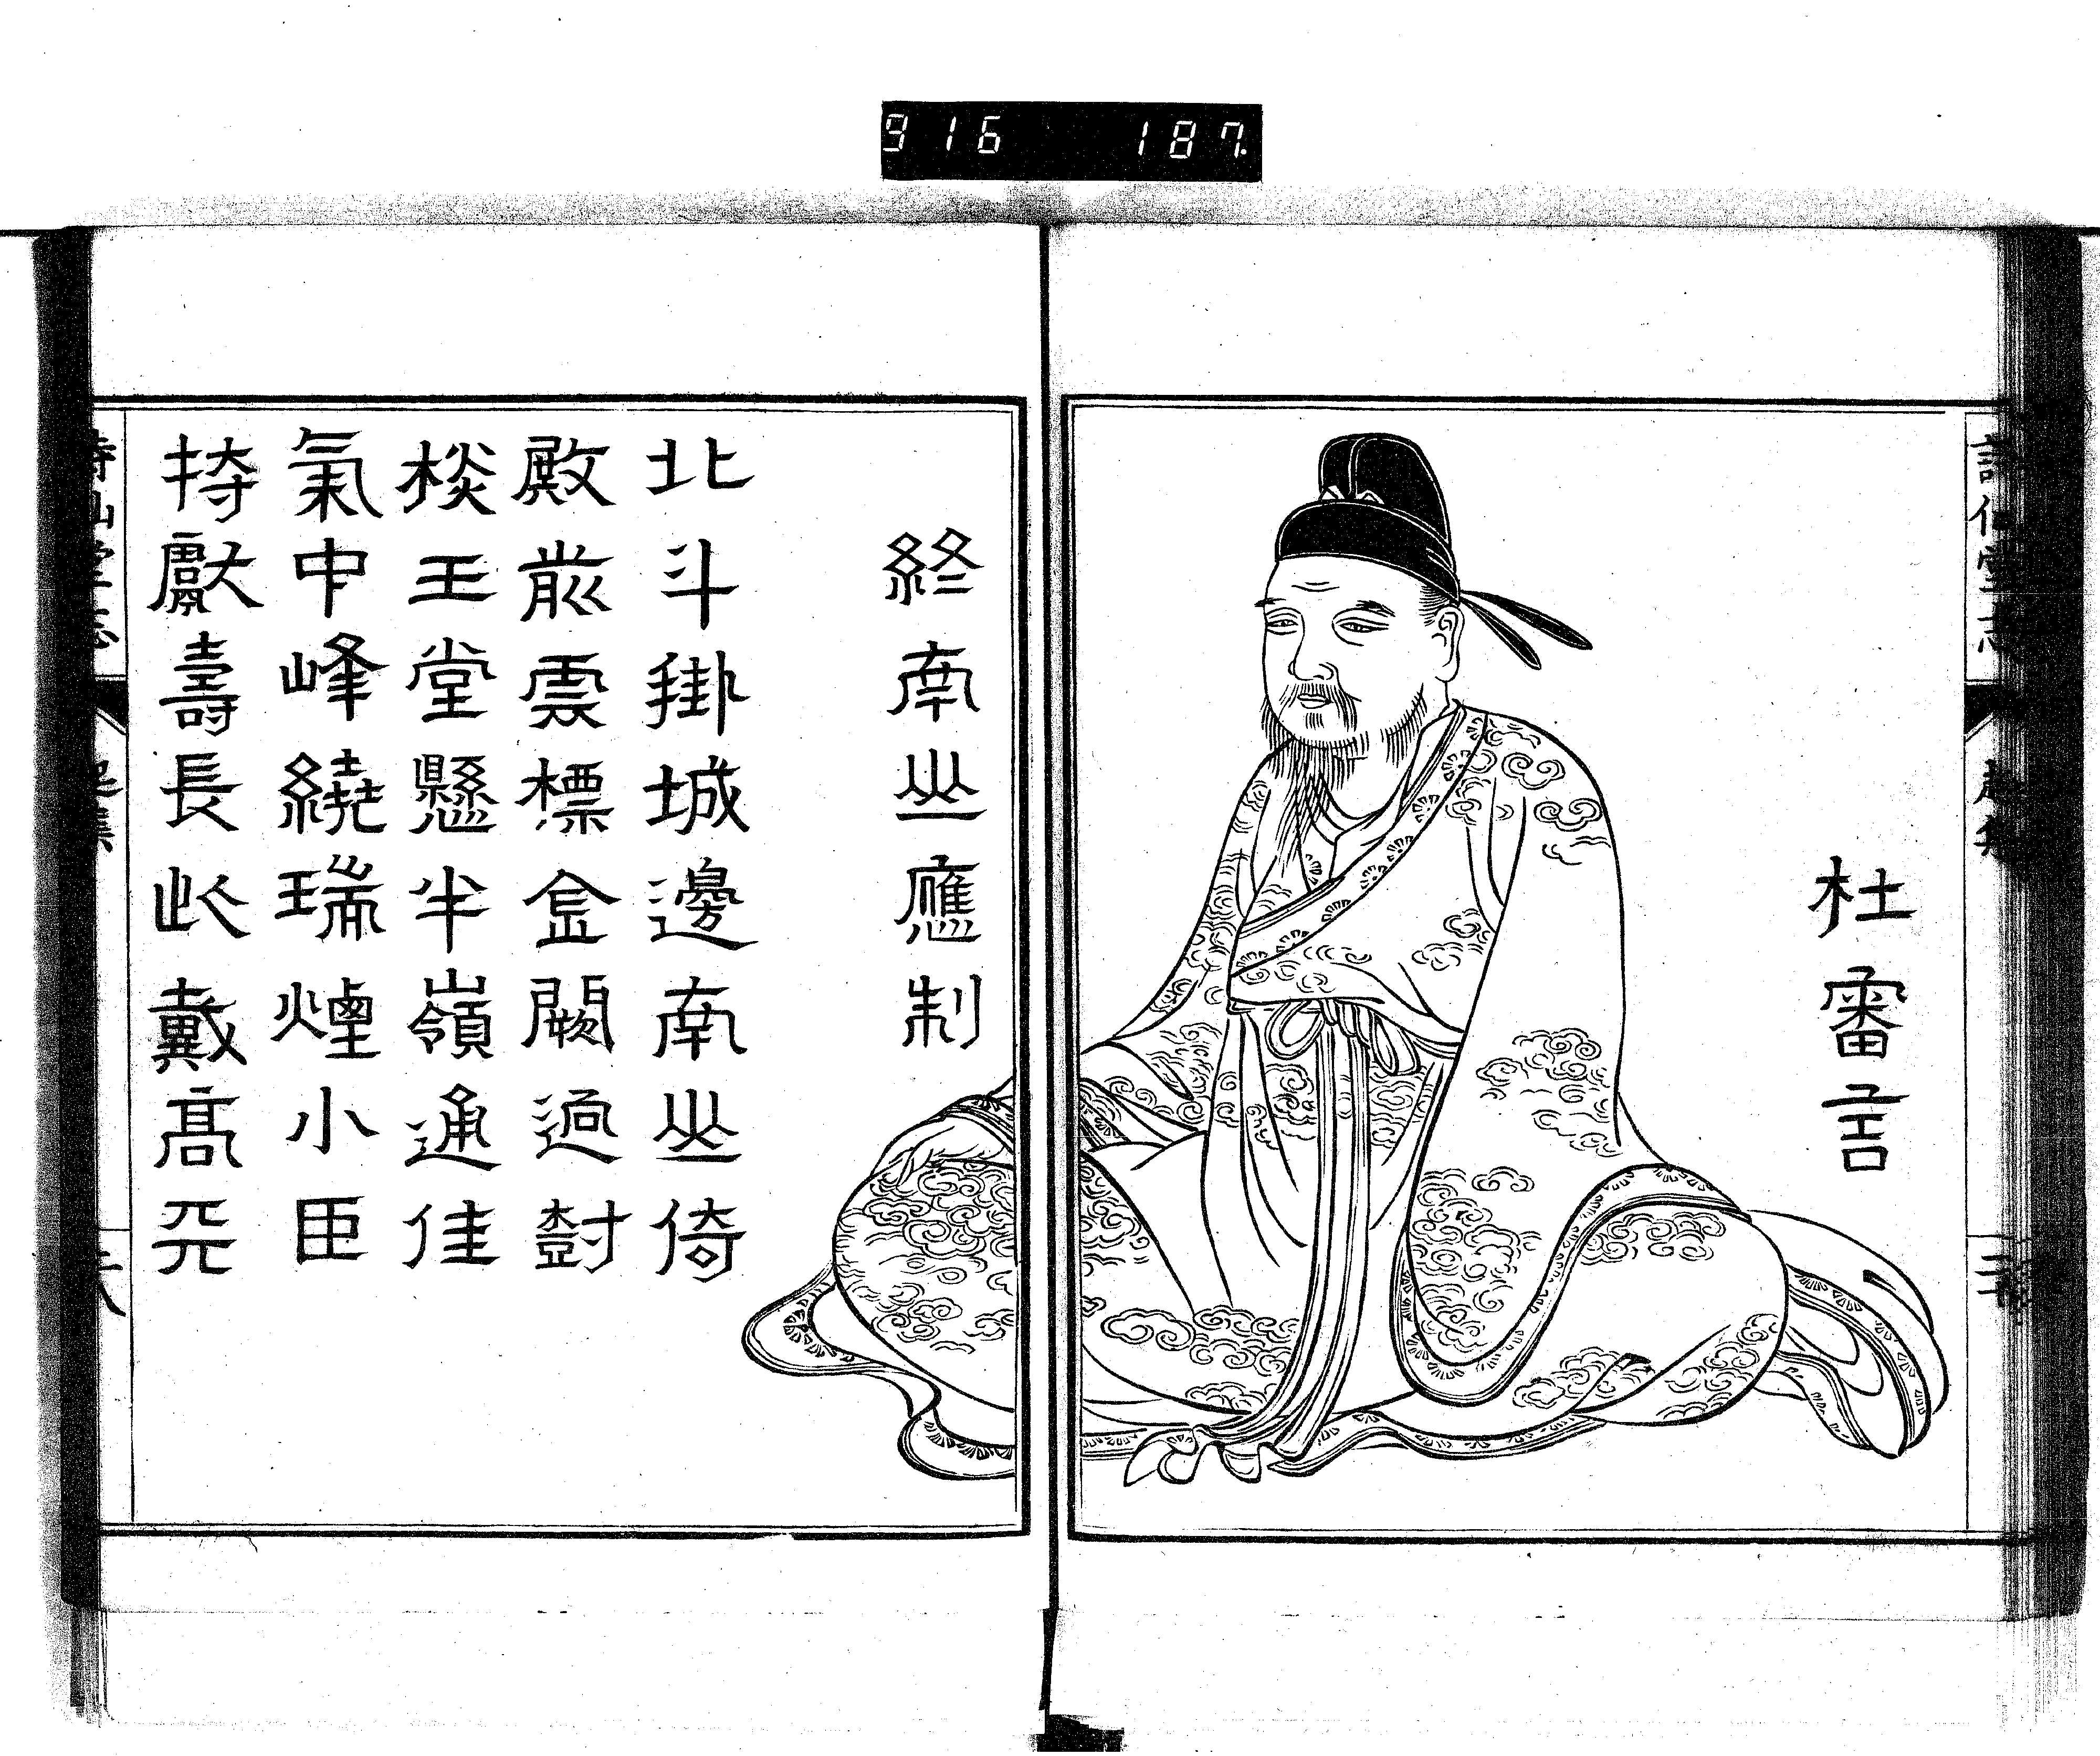 916 187
杜審言
終南山應制
北斗掛城邊南山倚
殿前雲標金闕逈對
棪王堂懸半嶺通佳
氣中峰繞瑞煙小臣
持獻壽長此戴髙天